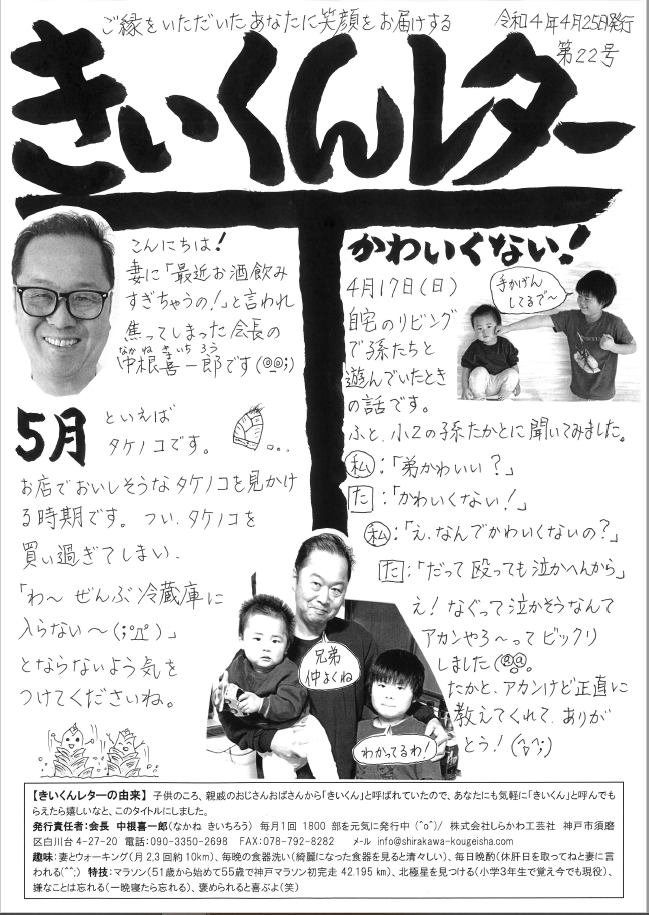 ご縁をいただいたあなたに笑顔をお届けする
令和4年4月25日発行
第22号
きいくんレター
こんにちは!
妻に「最近お酒飲み
すぎちゃうの!」と言われ
焦ってしまった会長の
なかね きいち ろう
中根喜一郎です(@@;)
5月
といえば
タケノコです。
お店でおいしそうなタケノコを見かけ
る時期です。つい、タケノコを
買い過ぎてしまい、
「わ〜 ぜんぶ冷蔵庫に
入らない〜(;°Д°)」
とならないよう気を
つけてくださいね。
かわいくない!
4月17日(日)
自宅のリビング
で孫たちと
遊んでいたとき
の話です。
ふと、小2の孫たかとに聞いてみました。
手かげん
してるで〜
私:「弟かわいい?」
た:「かわいくない!」
私:「え、なんでかわいくないの?」
た:「だって殴っても泣かへんから」
え!なぐって泣かそうなんて
アカンやろ〜ってビックリ
しました(@@。
たかと、アカンけど正直に
教えてくれて、ありが
とう!(^o^;)
兄弟
仲よくね
わかってるわ!
【きいくんレターの由来】子供のころ、親戚のおじさんおばさんから「きいくん」と呼ばれていたので、あなたにも気軽に「きいくん」と呼んでも
らえたら嬉しいなと、このタイトルにしました。
発行責任者:会長 中根喜一郎(なかね きいちろう) 毎月1回 1800 部を元気に発行中 (^o^)/ 株式会社しらかわ工芸社 神戸市須磨
区白川台 4-27-20 電話:090-3350-2698 FAX:078-792-8282 メール info@shirakawa-kougeisha.com
趣味:妻とウォーキング(月 2,3 回約 10km)、毎晩の食器洗い(綺麗になった食器を見ると清々しい)、毎日晩酌(休肝日を取ってねと妻に言
われる(^^;) 特技:マラソン(51歳から始めて55歳で神戸マラソン初完走 42.195 km)、北極星を見つける(小学3年生で覚え今でも現役)、
嫌なことは忘れる(一晩寝たら忘れる)、褒められると喜ぶよ(笑)